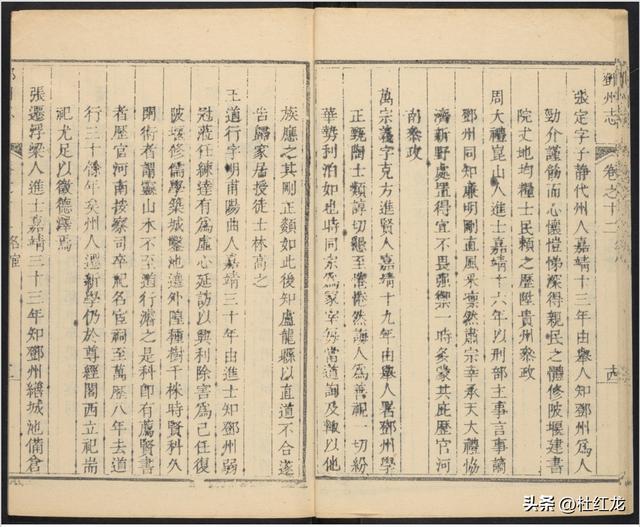 鄧州志
卷之十二
張定字子静代州人嘉靖十三年由舉人知鄧州爲人
勁介謹飭而心懷愷悌深得親民之體修陂堰建書
院丈地均糧士民賴之歷陞貴州叅政
周大禮崑山人進士嘉靖十六年以刑部主事言事謫
鄧州同知廉明剛直風采凛然肅宗幸承天大禮協
濟新野處置得宜不畏强禦一時多蒙其庇歷官河
南叅政
萬宗字克方進賢人嘉靖十九年由舉人署鄧州學
正範陶士類諄切懇至惓惓然誨人爲善視一切紛
華勢利泊如也時同宗爲冡宰每當道詢及輙以他
族應之其剛正類如此後知盧龍縣以直道不合遂
告歸家居授徒士林高之
王道行字明甫陽曲人嘉靖三十年由進士知鄧州弱
冠蒞任練達有爲虚心延訪以興利除害爲己任復
陂堰修儒學築城鑿池遶外隍種樹千株時賢科久
開術者謂靈山水不至道行濬之是科即有薦賢書
者歷官河南按察司卒祀名宦祠至萬歷八年去道
行三十餘年矣州人遷新學仍於尊經閣西立祀耑
祀尤足以徵德澤焉
張邊浮梁人進士嘉靖三十三年知鄧州繕城池備倉
名宦
头条 @杜红龙